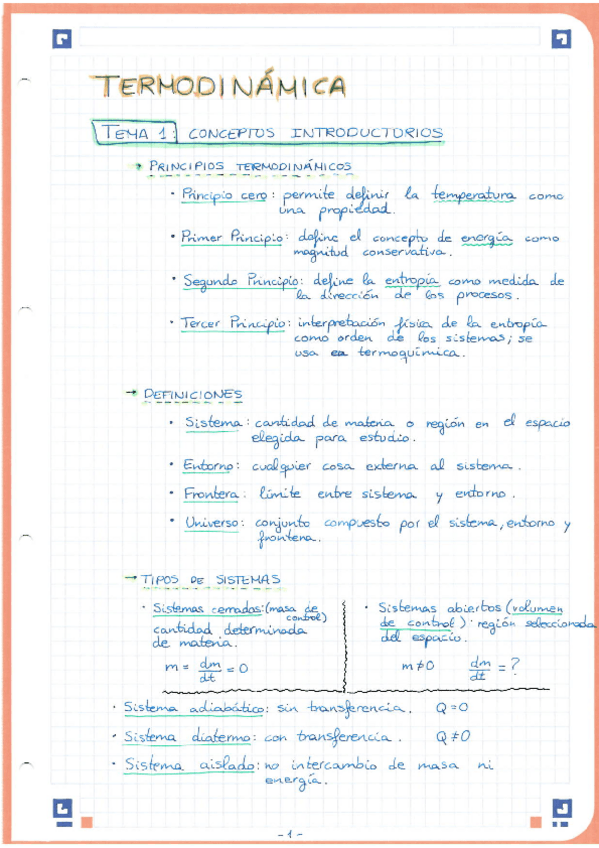 TERMODINÁMICA
TEMA 1: CONCEPTOS INTRODUCTORIOS
PRINCIPIOS TERMODINÁMICOS
· Principio cero: permite definir la temperatura como
una propiedad.
· Primer Principio: define el concepto de energía como
magnitud conservativa.
· Segundo Principio: define la entropía como medida de
la dirección de los procesos.
· Tercer Principio: interpretación física de la entropía
como orden de los sistemas; se
usa en termoquímica.
→ DEFINICIONES
· Sistema: cantidad de materia o región en el espacio
elegida para estudio.
· Entorno: cualquier cosa externa al sistema.
· Frontera: límite entre sistema y entorno.
· Universo: conjunto compuesto por el sistema, entorno y
frontera.
→ TIPOS DE SISTEMAS
· Sistemas cerrados: (masa de
control)
cantidad determinada
de materia.
m = dm/dt = 0
· Sistemas abiertos (volumen
de control): región seleccionada
del espacio.
m ≠ 0 dm/dt = ?
· Sistema adiabático: sin transferencia. Q = 0
· Sistema diatermo: con transferencia. Q ≠ 0
· Sistema aislado: no intercambio de masa ni
energía.
- 1 -